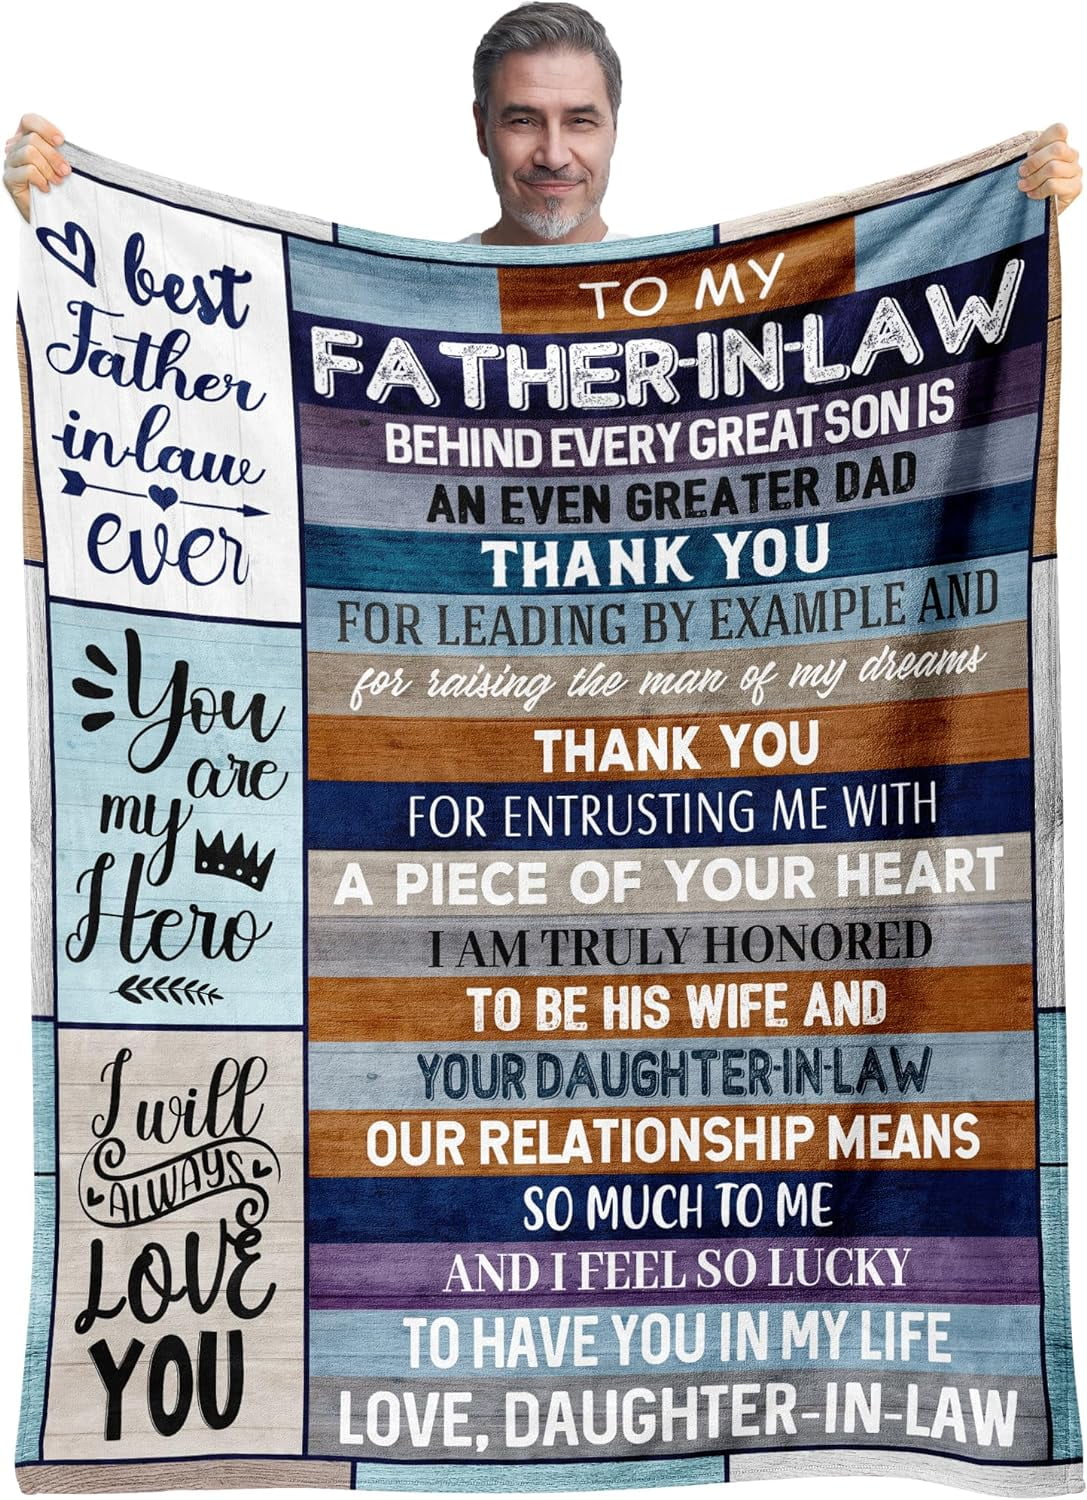 best
Father
-in-law
ever
You
are
my
Hero
I will
ALWAYS
LOVE
YOU
TO MY
FATHER-IN-LAW
BEHIND EVERY GREAT SON IS
AN EVEN GREATER DAD
THANK YOU
FOR LEADING BY EXAMPLE AND
for raising the man of my dreams
THANK YOU
FOR ENTRUSTING ME WITH
A PIECE OF YOUR HEART
I AM TRULY HONORED
TO BE HIS WIFE AND
YOUR DAUGHTER-IN-LAW
OUR RELATIONSHIP MEANS
SO MUCH TO ME
AND I FEEL SO LUCKY
TO HAVE YOU IN MY LIFE
LOVE, DAUGHTER-IN-LAW